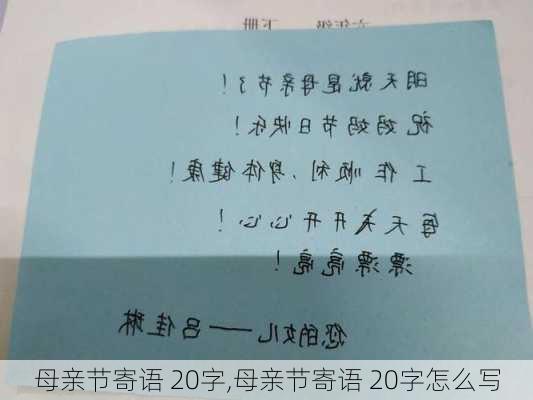 六年级 下册
明天就是母亲节了!
祝妈妈节日快乐!
工作顺利、身体健康!
每天开开心心!
漂漂亮亮!
您的女儿——吕佳琳
母亲节寄语 20字,母亲节寄语 20字怎么写